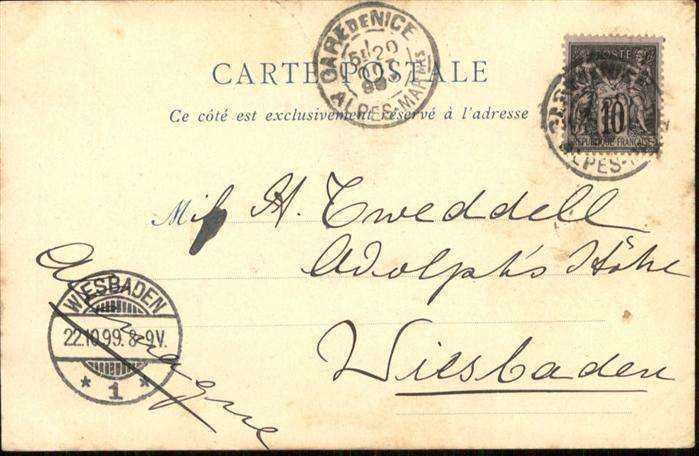 GARE DE NICE
5E 20
OCT
99
ALPES-MARMES
CARTE POSTALE
Ce côté est exclusivement réservé à l'adresse
POSTE
10
REPUBLIQUE FRANÇAISE
ALPES-
Miss H. Tweddell
Adolph's Höhe
Wiesbaden
Allemagne
WIESBADEN
22.10.99.8-9V.
* 1 *